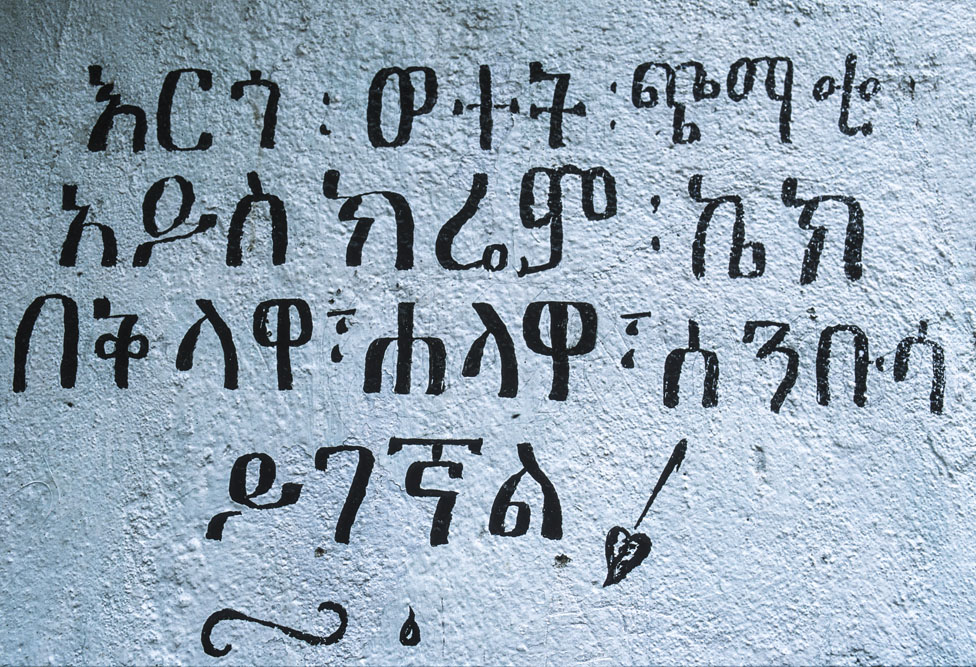 እርጎ ፡ ወተት ፡ ጭማቂ
አይስ ክሬም ፡ ኬክ
በቅላዋ፣ ሐላዋ፣ ሰንቡሳ
ይገኛል !